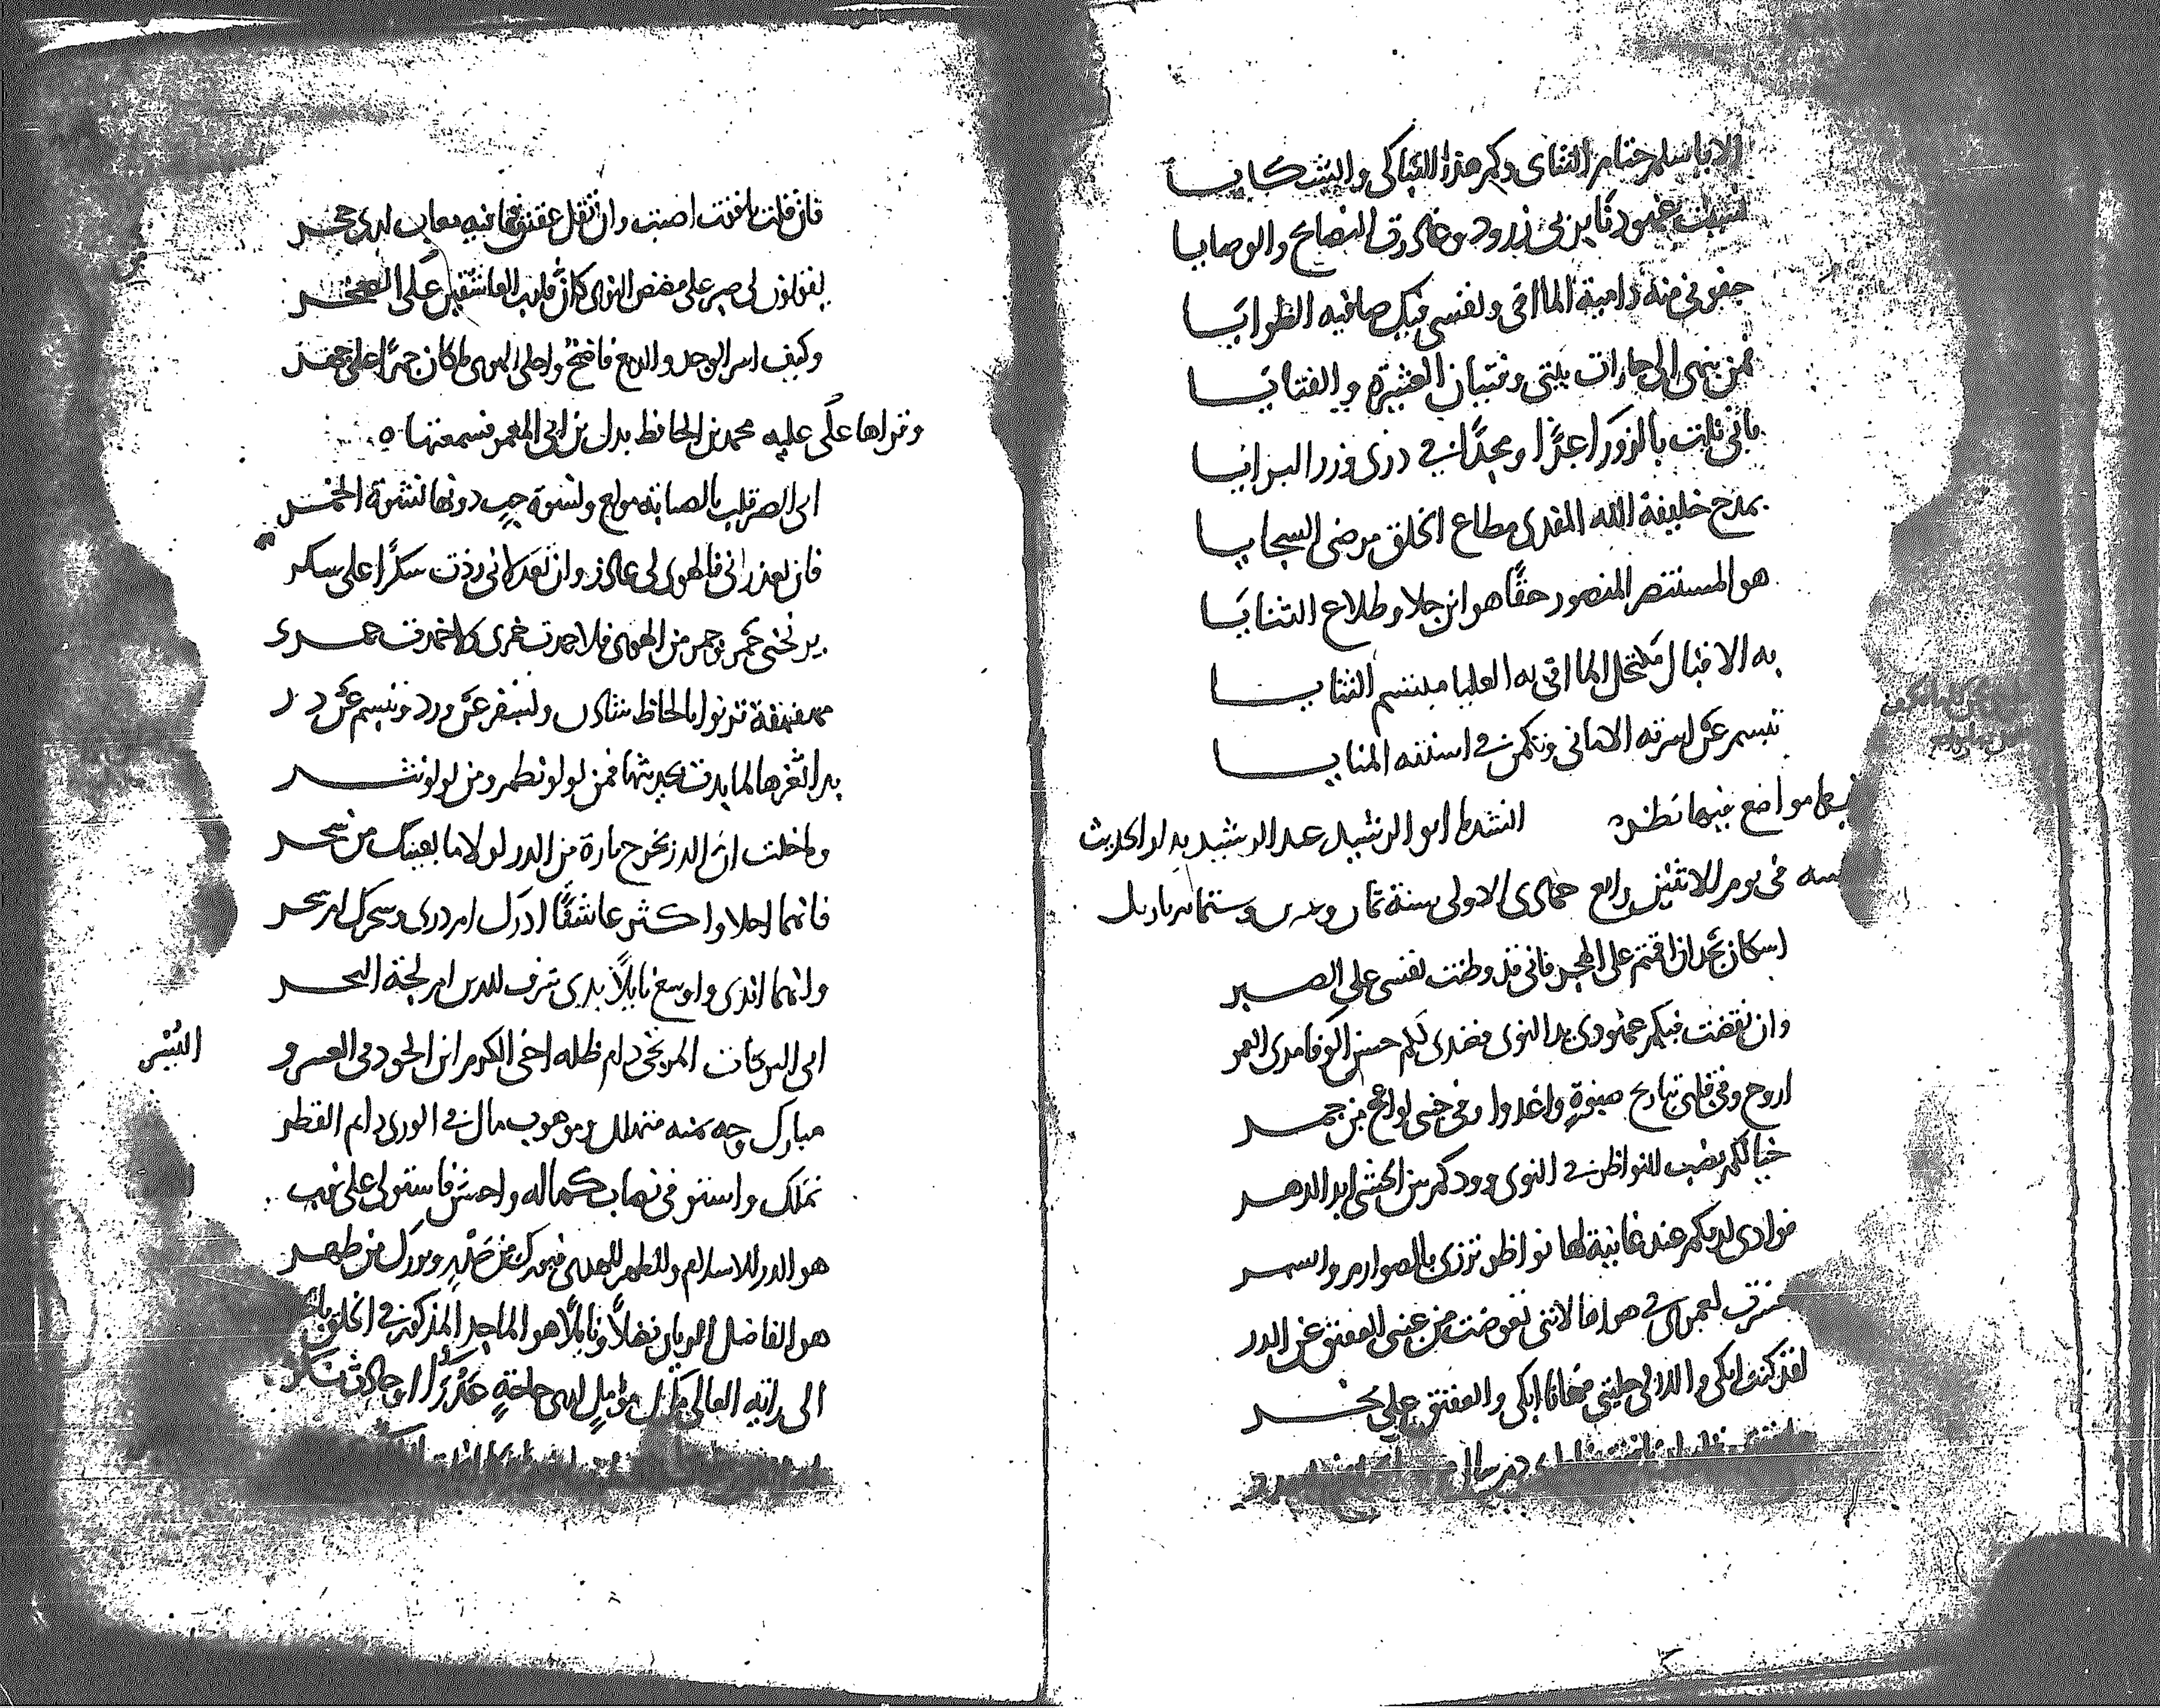 الا يا سلم حتام التنائ وكم هذا التباكى والتشكايا
عهودنا بربى زرود وغادرت النصايح والوصايا
جفونى منه دامية المااقى ونفسى فيك صافيه الطوايا
فمن ينهى الى جارات بيتى وفتيان العشيرة والفتايا
بانى نلت بالزوراء عزا ومجدا فى ذرى وزر البرايا
بمدح خليفة الله المفدى مطاع الخلق مرضى السجايا
هو المستنصر المنصور حقا هو ابن جلا وطلاع الثنايا
به الاقبال مكتحل المااقى به العليا مبتسم الثنايا
تبسم عن اسرته الامانى وتكمن فى اسنته المنايا
مواضع فيها نظر انشدنا ابو الرشيد عبد الرشيد بدار الحديث
فى يوم الاثنين رابع جمادى الاولى سنة ثمان وستمائة باربل
اسكان نجد ان اقمتم على الهجر فانى قد وطنت نفسى على الصبر
وان نقضت فيكم عهودى يد النوى فعندى لكم حسن الوفا مدى العمر
اروح وفى قلبى تباريح صبوة واغدوا وفى جنبى لواعج من جمر
خيالكم نصب النواظر فى النوى وودكم بين الحشى ابد الدهر
فوادى لديكم عند غانية لها نواظر تزرى بالصوارم والسمر
لعمرى فى هواها لاننى تعوضت من عينى العقيق عن الدر
لقد كنت ابكى والدر لى حليتى فها انا ابكى والعقيق على نحر
فان قلت ياقوت اصبت وان تقل عقيق فما فيه معاب لدى حجر
يقولون لى صبر على مضض الهوى كان قلوب العاشقين على الصخر
وكيف اسر الوجد والدمع فاضح واحلى الهوى ما كان جهرا على جهر
وقراها على عليه محمد بن الحافظ بدل بن ابى المعمر فسمعتها ه
ابى الصبر قلب بالصبابه مولع ونشوة حب دونها نشوة الخمر
فان تعذرانى فالهوى لى عاذر وان تعذلانى زدت سكرا على سكر
يرنحنى خمر وجمر من الهوى فلا جمدت خمرى ولا خمدت جمرى
مهفهفة ترنوا بالحاظ شادن وتسفر عن ورد وتبسم عن در
بدا ثغرها لما بدت بحديثها فمن لولو نظم ومن لولو نثر
وما خلت ان الدر يخرج تارة من الدر لولا ما بعينيك من سحر
فايهما احلا واكثر عاشقا ادرك ام درى وسحرك ام سحر
وايهما اندى واوسع نايلا يدى شرف الدين ام لجة البحر
ابى البركات المرتجى دام ظله اخى الكرم ابن الجود فى العسر و اليسر
مبارك وجه يمنه متهلل وموهوب مال فى الورى دايم القطر
تملك واستوفى نهاب كماله واحسن فاستولى على نهب
هو الدر للاسلام والطهر للهدى فبورك من صدر وبورك من طهر
هو الفاضل الريان فضلا ونايلا هو الماجد المذكور فى الخلق
الى رايه العالى مؤمل لدى حاجة